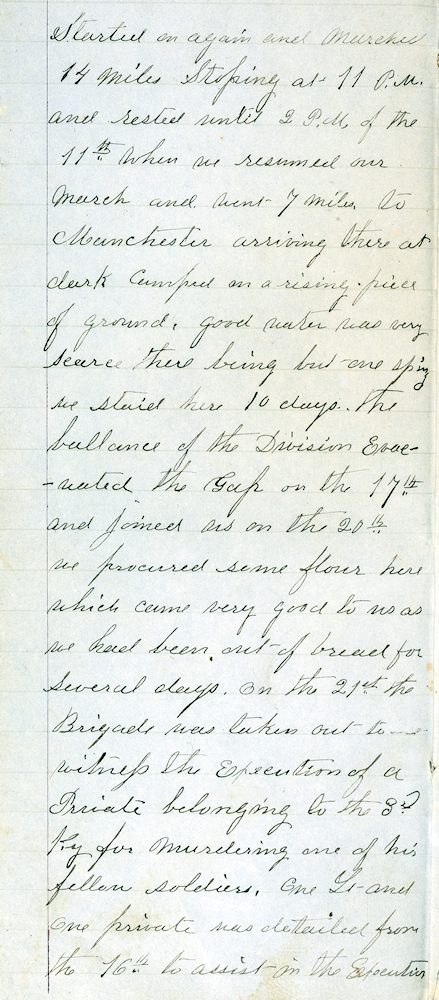 Started on again and Marched
14 miles Stoping at 11 P.M.
and rested until 2 P.M. of the
11th when we resumed our
March and went 7 miles to
Manchester arriving there at
dark Camped on a rising piece
of ground. good water was very
scarce there being but one spring
we staid here 10 days. the
ballance of the Division Evac-
-uated the Gap on the 17th
and joined us on the 20th
we procured some flour here
which came very good to us as
we had been out of bread for
several days. On the 21st the
Brigade was taken out to
witness the Execution of a
Private belonging to the 3rd
Ky for Murdering one of his
fellow soldiers. One Lt and
One private was detailed from
the 16th to assist in the Execution